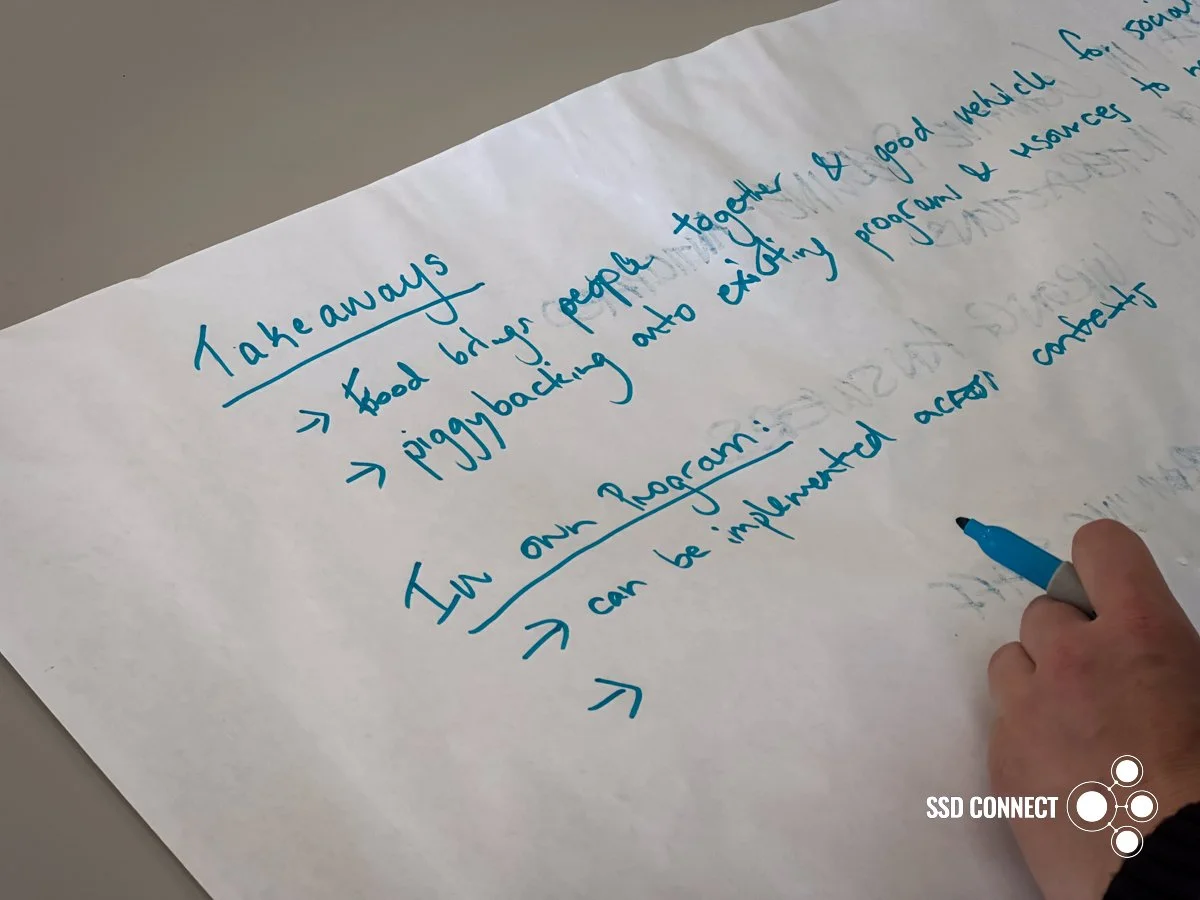 Takeaways
→ Food brings people together & good vehicle for social
→ piggybacking onto existing programs & resources to
In own Program:
→ can be implemented across contexts
→
SSD CONNECT